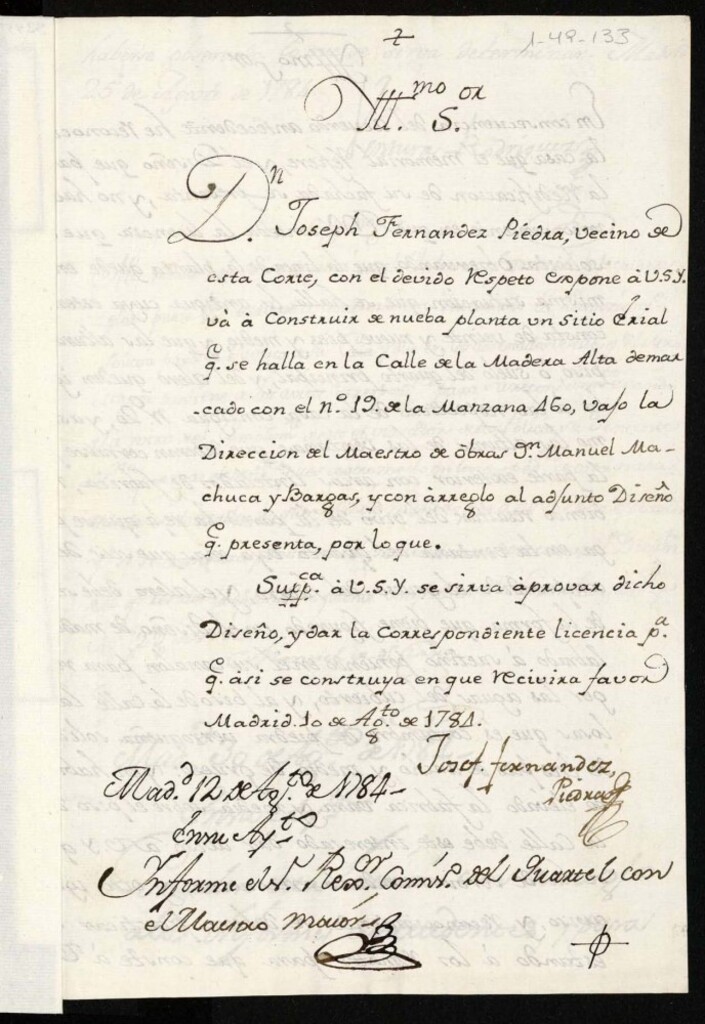 1-49-133
Ill.mo S.or
D.n Joseph Fernandez Piedra, vecino de
esta Corte, con el devido respeto expone à V.S.Y.
và à Construir de nueba planta un Sitio Erial
q.e se halla en la Calle de la Madera Alta demar
cado con el n.o 19. de la Manzana 460, vajo la
Direccion del Maestro de òbras D.n Manuel Ma-
chuca y Bargas, y con àrreglo al adjunto Diseño
q.e presenta, por lo que.
Supp.ca à V.S.Y. se sirva àprovar dicho
Diseño, y dar la Correspondiente licencia p.a
q.e àsi se construya en que recivira favor
Madrid. 10 de Ag.to de 1784.
Josef. fernandez,
Piedra
Mad.d 12 de Ag.to de 1784-
En su Ay.to
Informe el S.r Rex.or Comis.o del Quartel con
el Maestro maior